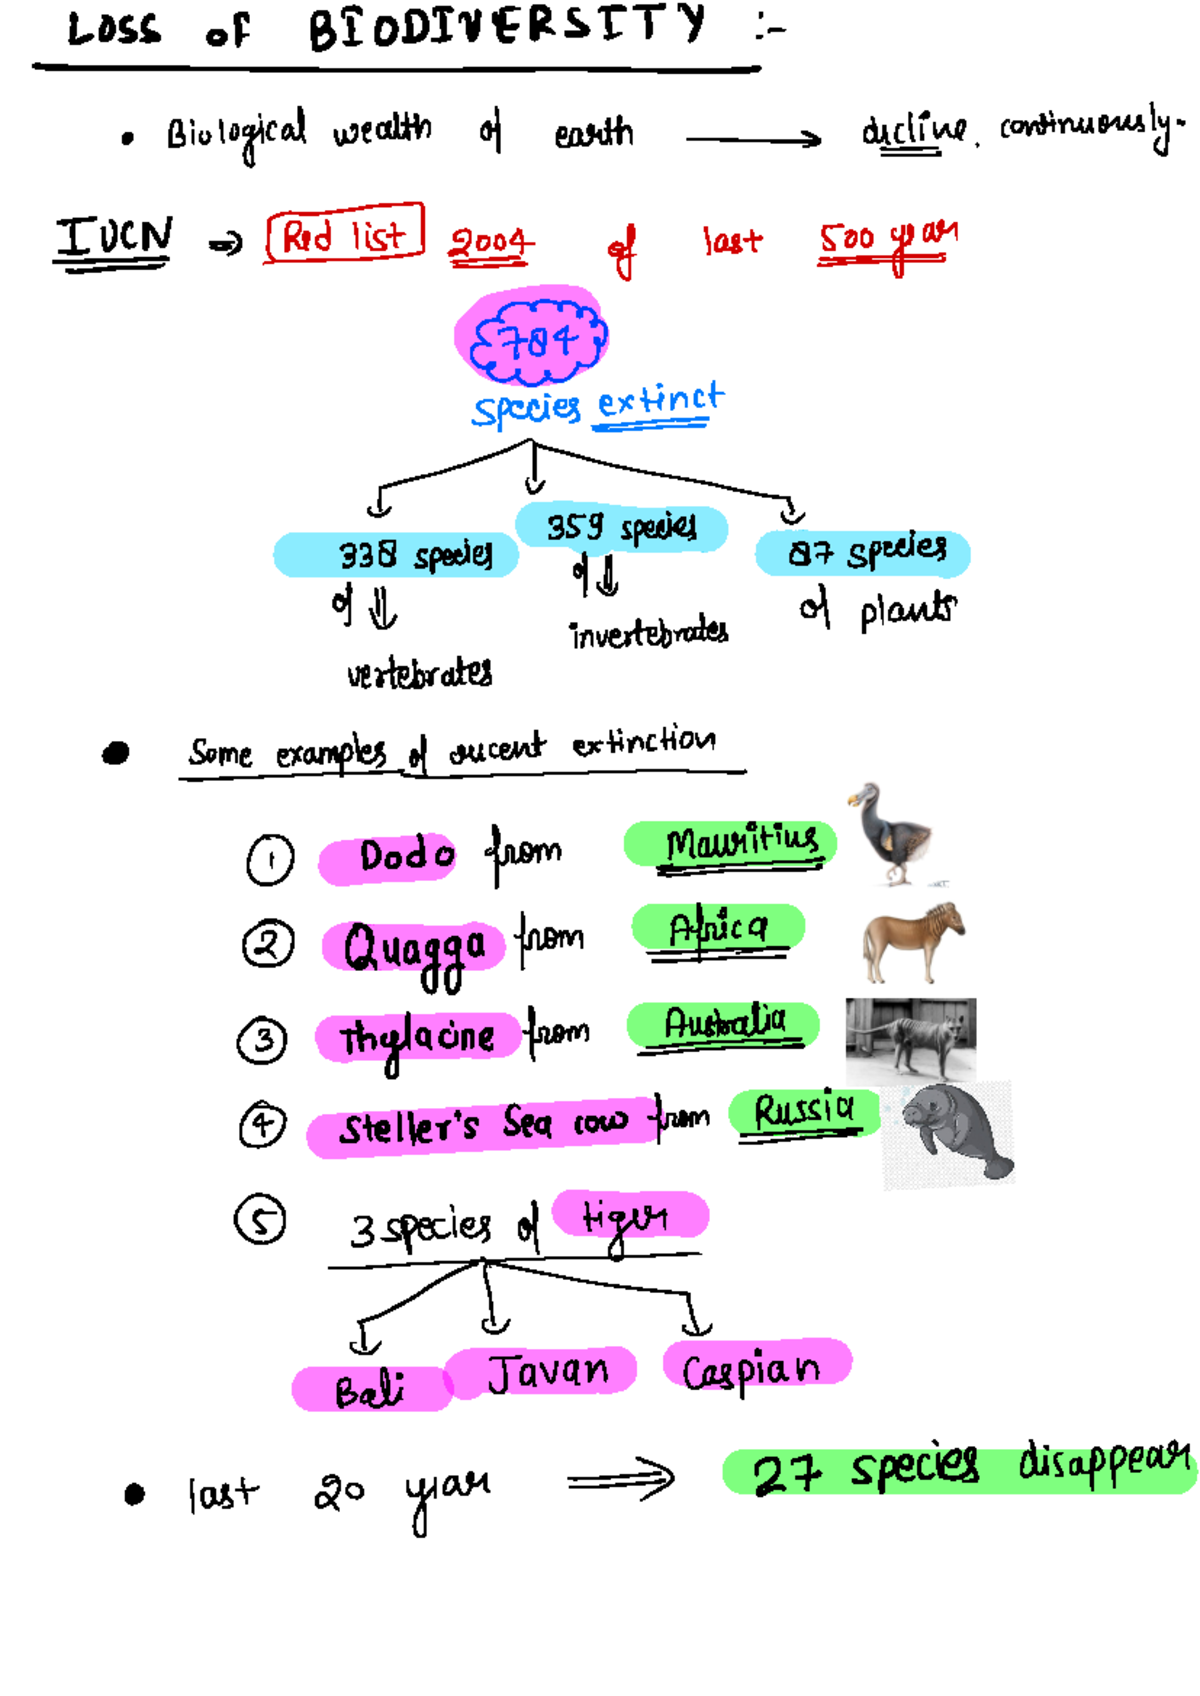 Loss of BIODIVERSITY :-
• Biological wealth of earth → decline. continuously.
IUCN ⇒ Red list 2004 of last 500 year
784
species extinct
338 species 359 species 87 species
of ⇓ of ⇓ of plants
vertebrates invertebrates
• Some examples of recent extinction
① Dodo from Mauritius
② Quagga from Africa
③ Thylacine from Australia
④ Steller's Sea cow from Russia
⑤ 3 species of tiger
Bali Javan Caspian
• last 20 year ⇒ 27 species disappear